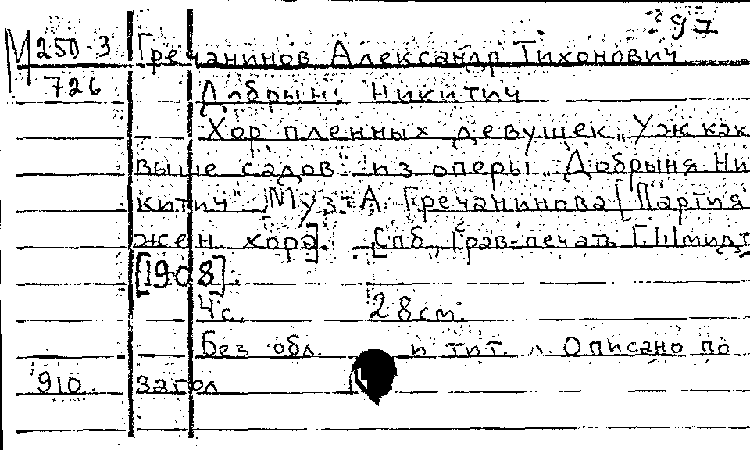 97
М 250-3 Гречанинов Александр Тихонович
726 Добрын: Никитич
Хор пленных девушек „Уж как
выше садов" из оперы „Добрыня Ни
китич" Муз. А. Гречанинова [Партия
жен. хора]. [Спб., Грав-печать Г. Шмидт
[1908].
4 с. 28 см.
Без обл. и тит. л. Описано по
910. загол